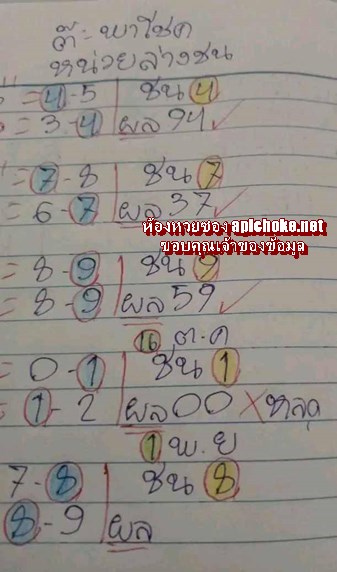 ต๊ะ พาโชค
หน่วยล่างชน
= 4-5 ชน 4
= 3-4 ผล 94 ✓
= 7-8 ชน 7
= 6-7 ผล 37 ✓
ห้องหวยซอง apichoke.net
ขอบคุณเจ้าของข้อมูล
= 8-9 ชน 9
= 8-9 ผล 59 ✓
16 ต.ค
= 0-1 ชน 1
= 1-2 ผล 00 X หลุด
1 พ.ย
7-8 ชน 8
8-9 ผล